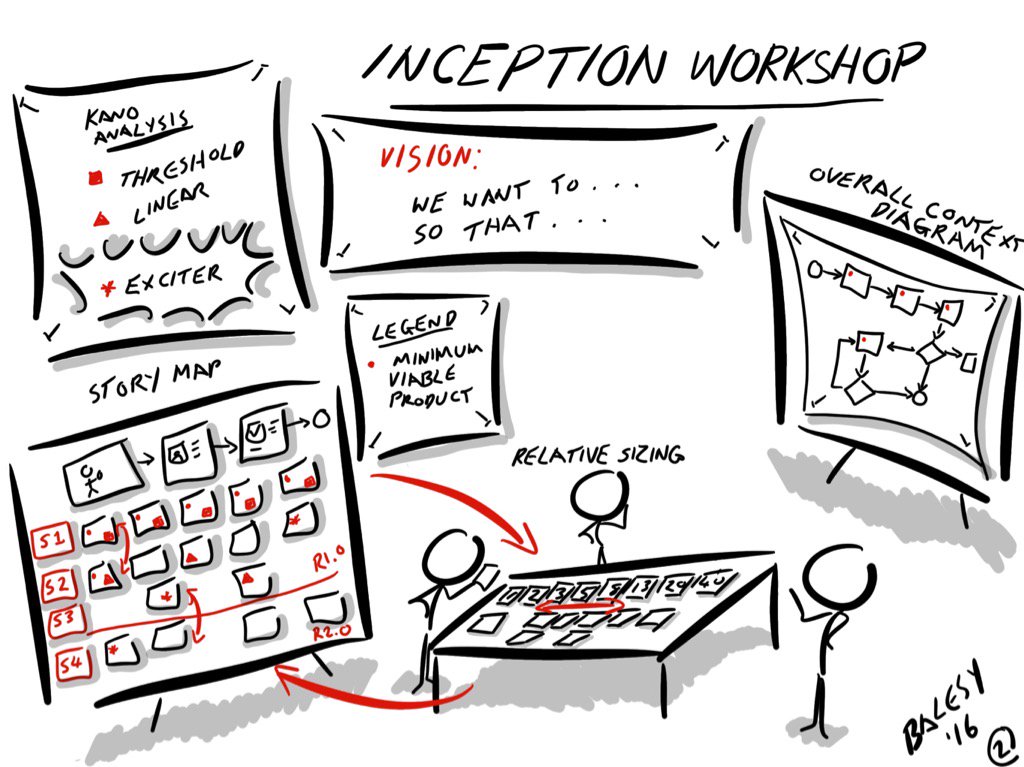 INCEPTION WORKSHOP
KANO
ANALYSIS
THRESHOLD
LINEAR
EXCITER
VISION:
WE WANT TO...
SO THAT...
OVERALL CONTEXT
DIAGRAM
LEGEND
MINIMUM
VIABLE
PRODUCT
STORY MAP
S1
S2
S3
S4
R1.0
R2.0
RELATIVE SIZING
2 3 5 8 13 20 40
BALESY
'16
2